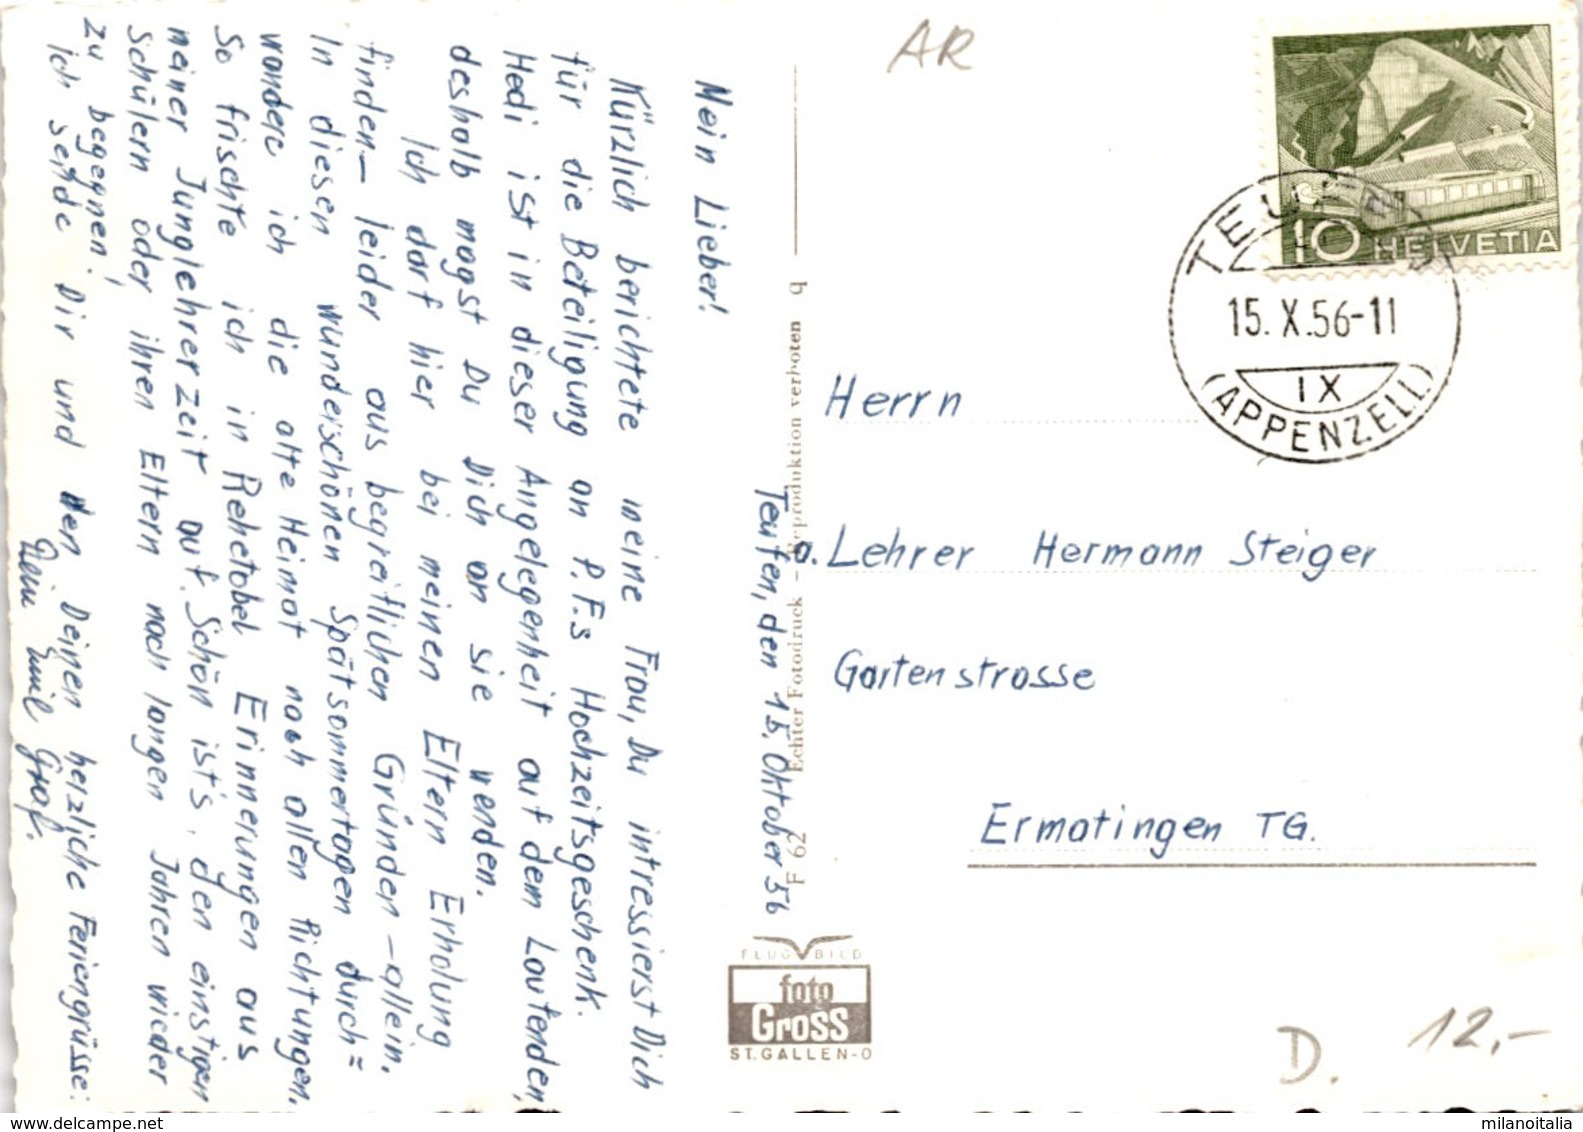 Teufen, den 15. Oktober 56
Mein Lieber!
Kürzlich berichtete meine Frau, Du intressierst Dich
für die Beteiligung an P. F.s Hochzeitsgeschenk.
Hedi ist in dieser Angelegenheit auf dem Laufenden,
deshalb magst Du Dich an sie wenden.
Ich darf hier bei meinen Eltern Erholung
finden – leider aus begreiflichen Gründen – allein.
In diesen wunderschönen Spätsommertagen durch=
wandere ich die alte Heimat nach allen Richtungen.
So frischte ich in Rehetobel Erinnerungen aus
meiner Junglehrerzeit auf. Schön ist's, den einstigen
Schülern oder ihren Eltern nach langen Jahren wieder
zu begegnen!
Ich sende Dir und den Deinen herzliche Feriengrüsse:
Dein Emil Graf.
F 62 Echter Fotodruck – Reproduktion verboten b
FLUG BILD
foto
Gross
ST. GALLEN-O
AR
10 HELVETIA
TEUFEN
15. X. 56-11
IX
(APPENZELL)
Herrn
a. Lehrer Hermann Steiger
Gartenstrasse
Ermatingen TG.
D. 12,-
milanoitalia
www.delcampe.net